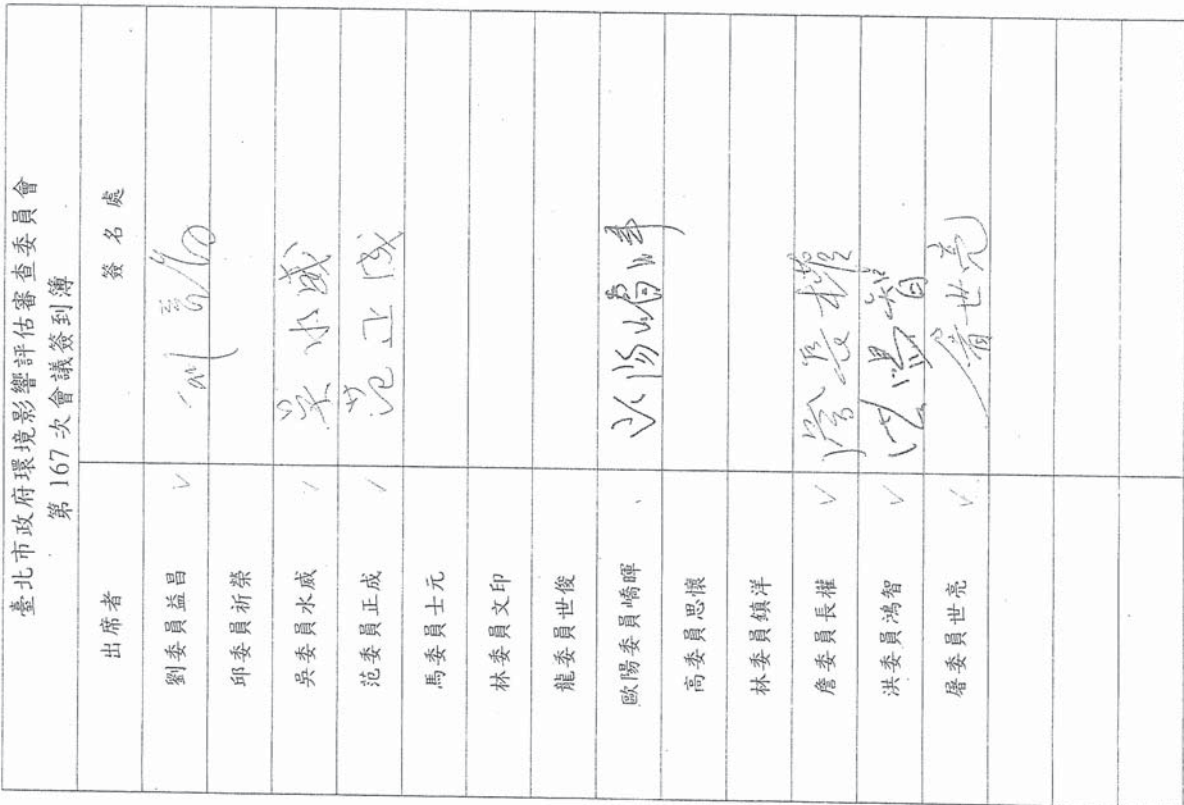 臺北市政府環境影響評估審查委員會
第 167 次會議簽到簿
出席者 簽名處
劉委員益昌 ✓
邱委員祈榮
吳委員水威 ✓ 吳水威
范委員正成 ✓ 范正成
馬委員士元
林委員文印
龍委員世俊
歐陽委員嶠暉 歐陽嶠暉
高委員思懷
林委員鎮洋
詹委員長權 ✓ 詹長權
洪委員鴻智 ✓ 洪鴻智
屠委員世亮 ✓ 屠世亮